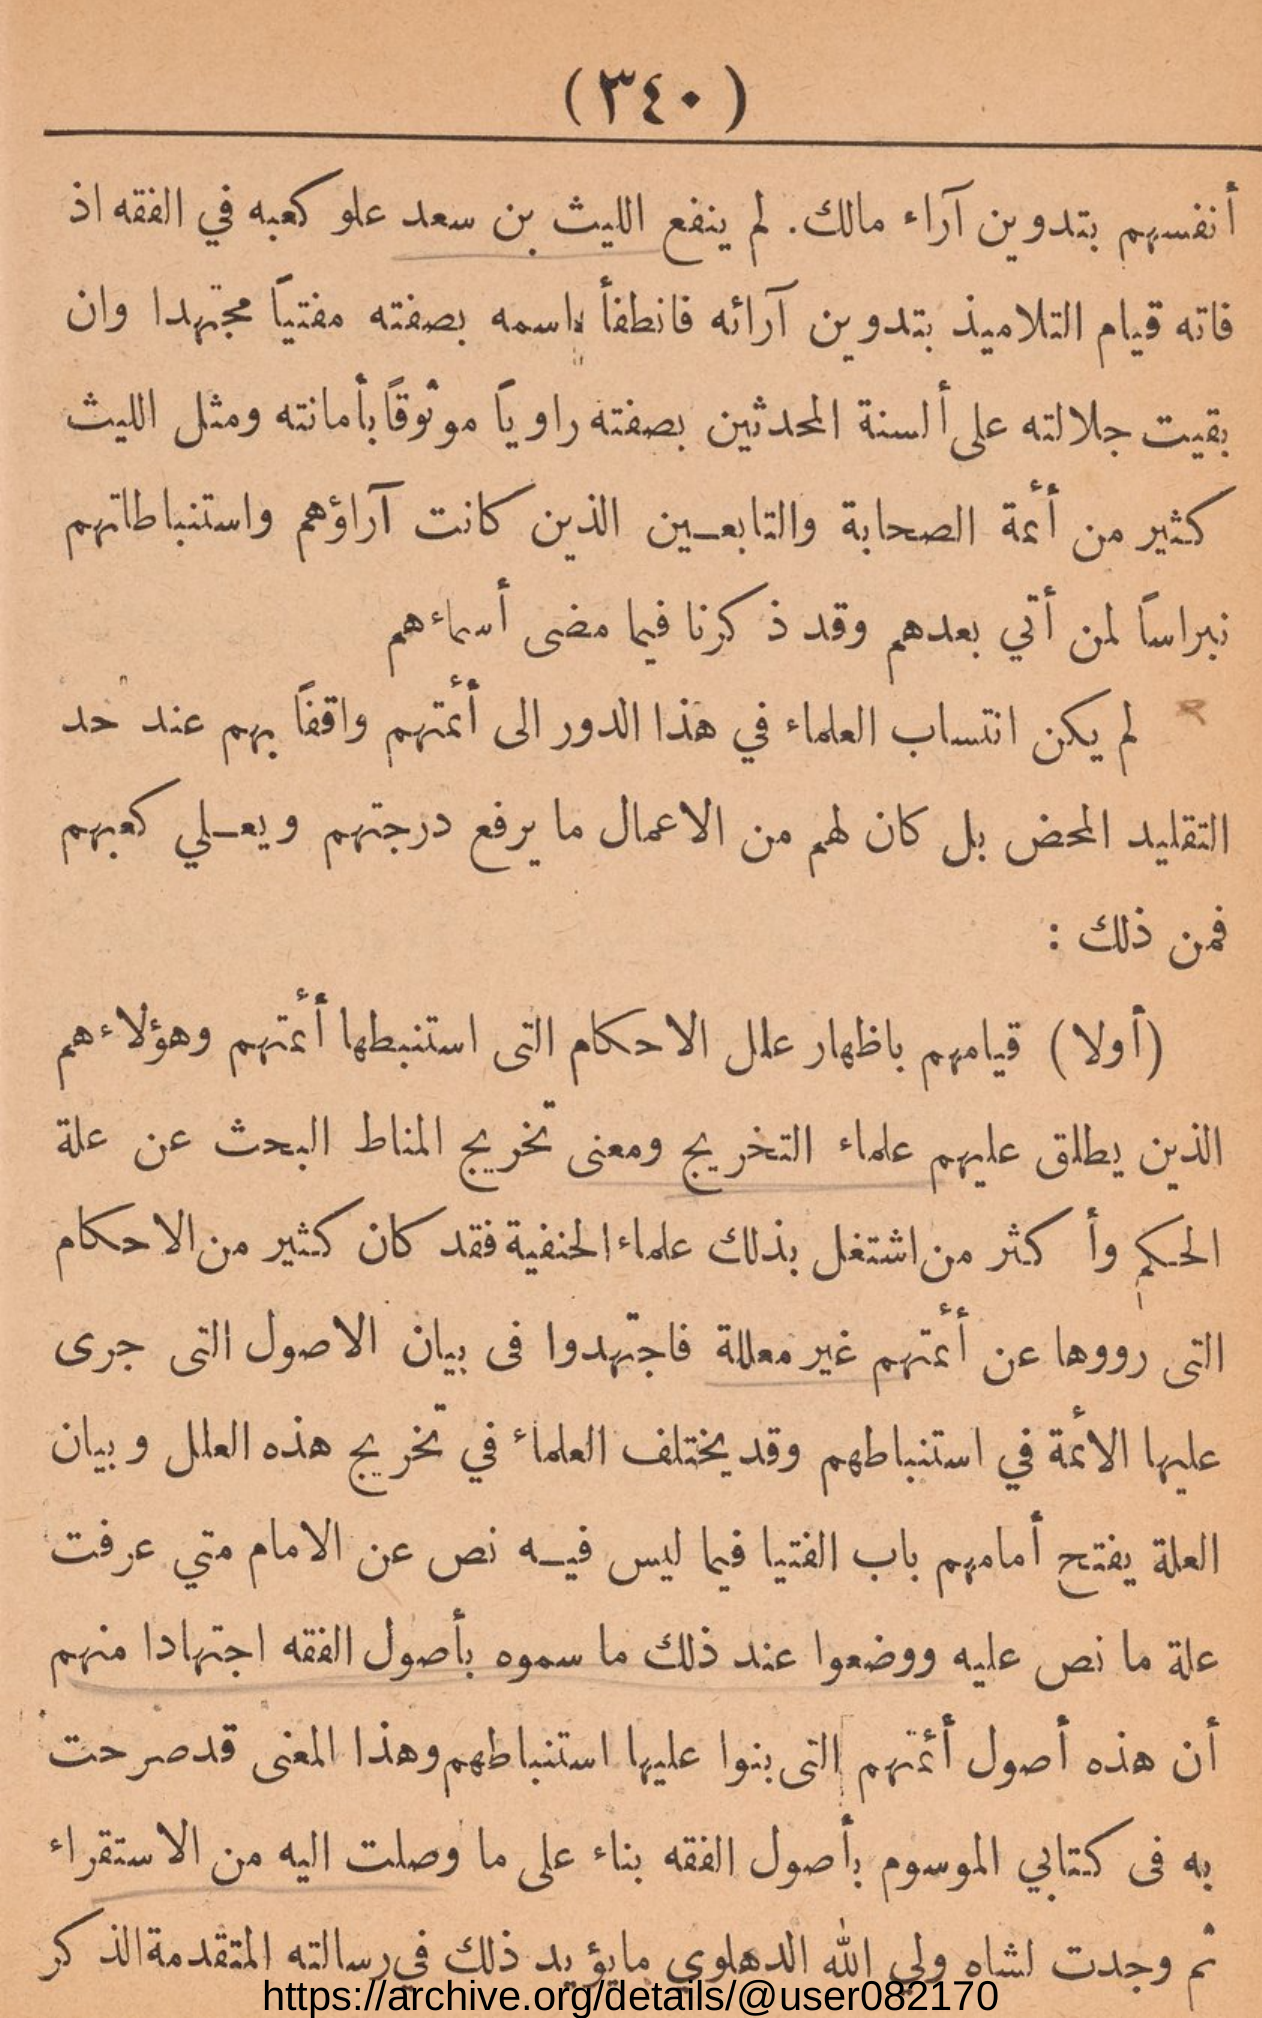 (٣٤٠)
أنفسهم بتدوين آراء مالك. لم ينفع الليث بن سعد علو كعبه في الفقه اذ
فاته قيام التلاميذ بتدوين آرائه فانطفأ اسمه بصفته مفتياً مجتهدا وان
بقيت جلالته على ألسنة المحدثين بصفته راوياً موثوقاً بأمانته ومثل الليث
كثير من أئمة الصحابة والتابعـين الذين كانت آراؤهم واستنباطاتهم
نبراساً لمن أتي بعدهم وقد ذكرنا فيما مضى أسماءهم
لم يكن انتساب العلماء في هذا الدور الى أئمتهم واقفاً بهم عند حد
التقليد المحض بل كان لهم من الاعمال ما يرفع درجتهم ويعـلي كعبهم
فمن ذلك :
(أولا) قيامهم باظهار علل الاحكام التى استنبطها أئمتهم وهؤلاء هم
الذين يطلق عليهم علماء التخريج ومعنى تخريج المناط البحث عن علة
الحكم وأكثر من اشتغل بذلك علماء الحنفية فقد كان كثير من الاحكام
التى رووها عن أئمتهم غير معللة فاجتهدوا فى بيان الاصول التى جرى
عليها الأئمة في استنباطهم وقد يختلف العلماء في تخريج هذه العلل وبيان
العلة يفتح أمامهم باب الفتيا فيما ليس فيـه نص عن الامام متي عرفت
علة ما نص عليه ووضعوا عند ذلك ما سموه بأصول الفقه اجتهادا منهم
أن هذه أصول أئمتهم التى بنوا عليها استنباطهم وهذا المعنى قد صرحت
به فى كتابي الموسوم بأصول الفقه بناء على ما وصلت اليه من الاستقراء
ثم وجدت لشاه ولي الله الدهلوي ما يؤيد ذلك في رسالته المتقدمة الذكر
https://archive.org/details/@user082170